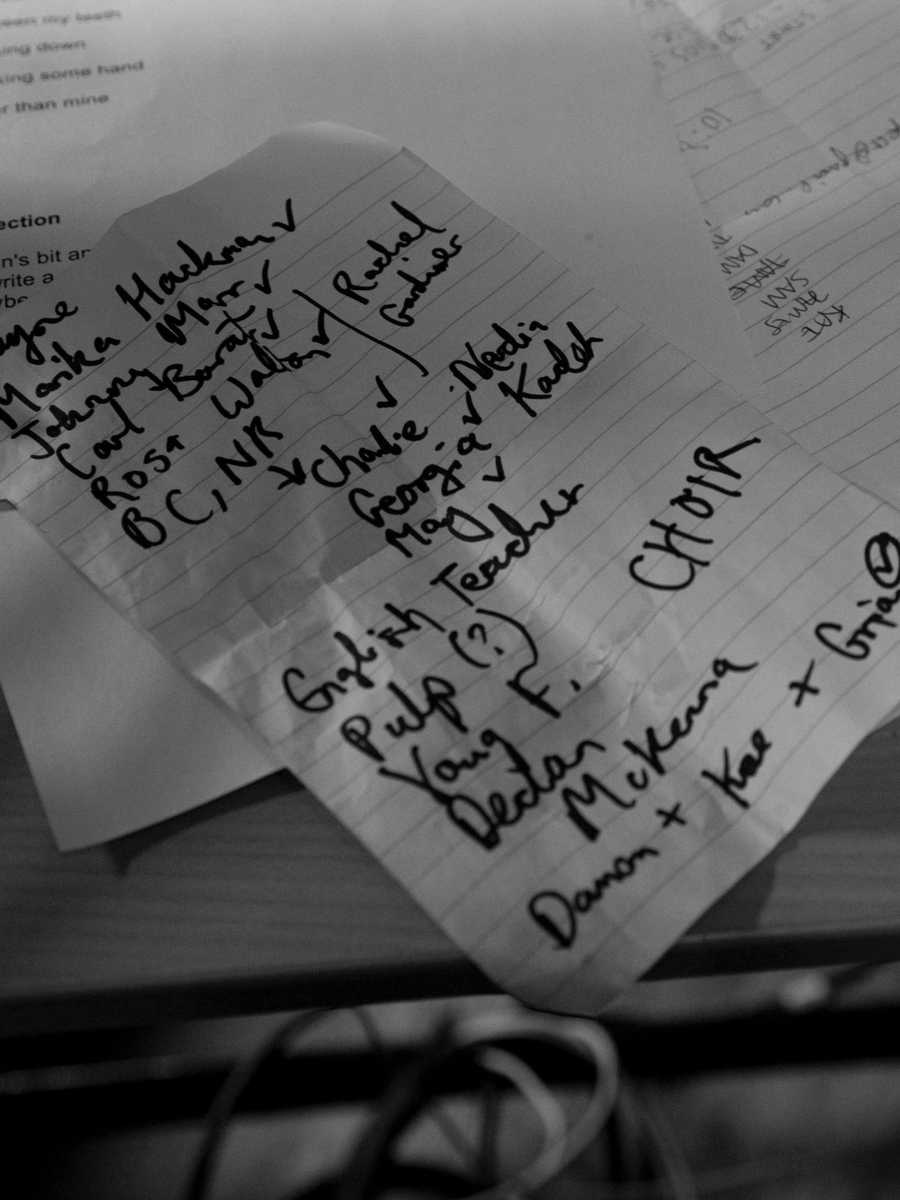 een my teeth
ing down
king some hand
r than mine
ection
n's bit ar
rite a
ybe
Marika Hackman ✓
Johnny Marr ✓
Carl Barât ✓
Rosa Walton ✓
Rachel
Gardiner
BC, NR
✓ Charlie
Nadia
Georgia ✓
Kadeh
May ✓
English Teacher
Pulp (?)
Young F.
Declan
McKenna
CHOIR
Damon + Kae + Grian
STREET
10:
SAM
KAT